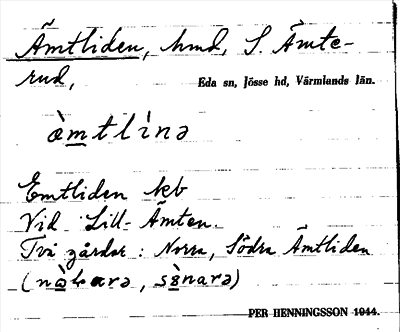 Ämtliden, hmd, S. Ämte-
rud,
Eda sn, Jösse hd, Värmlands län.
æ̀mtlìnə
Emtliden kb
Vid Lill-Ämten.
Två gårdar: Norra, Södra Ämtliden
PER HENNINGSSON 1944.